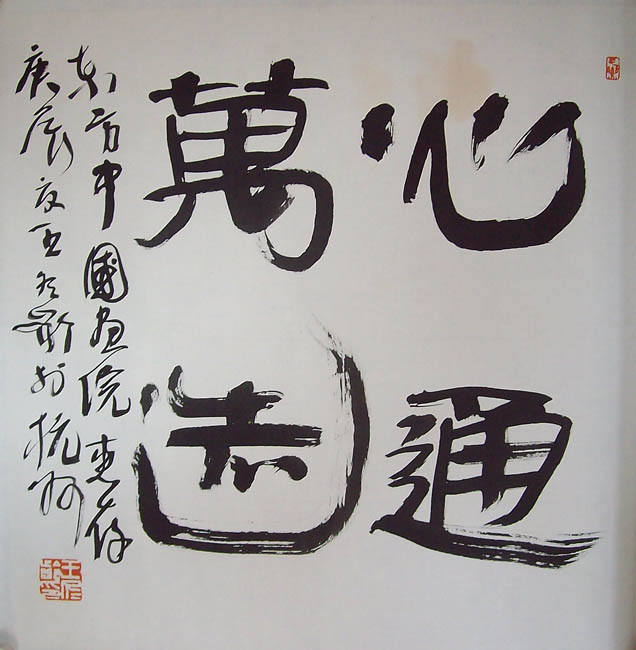 心通
萬
東方中國畫院惠存
庚辰夏王冬齡於杭州